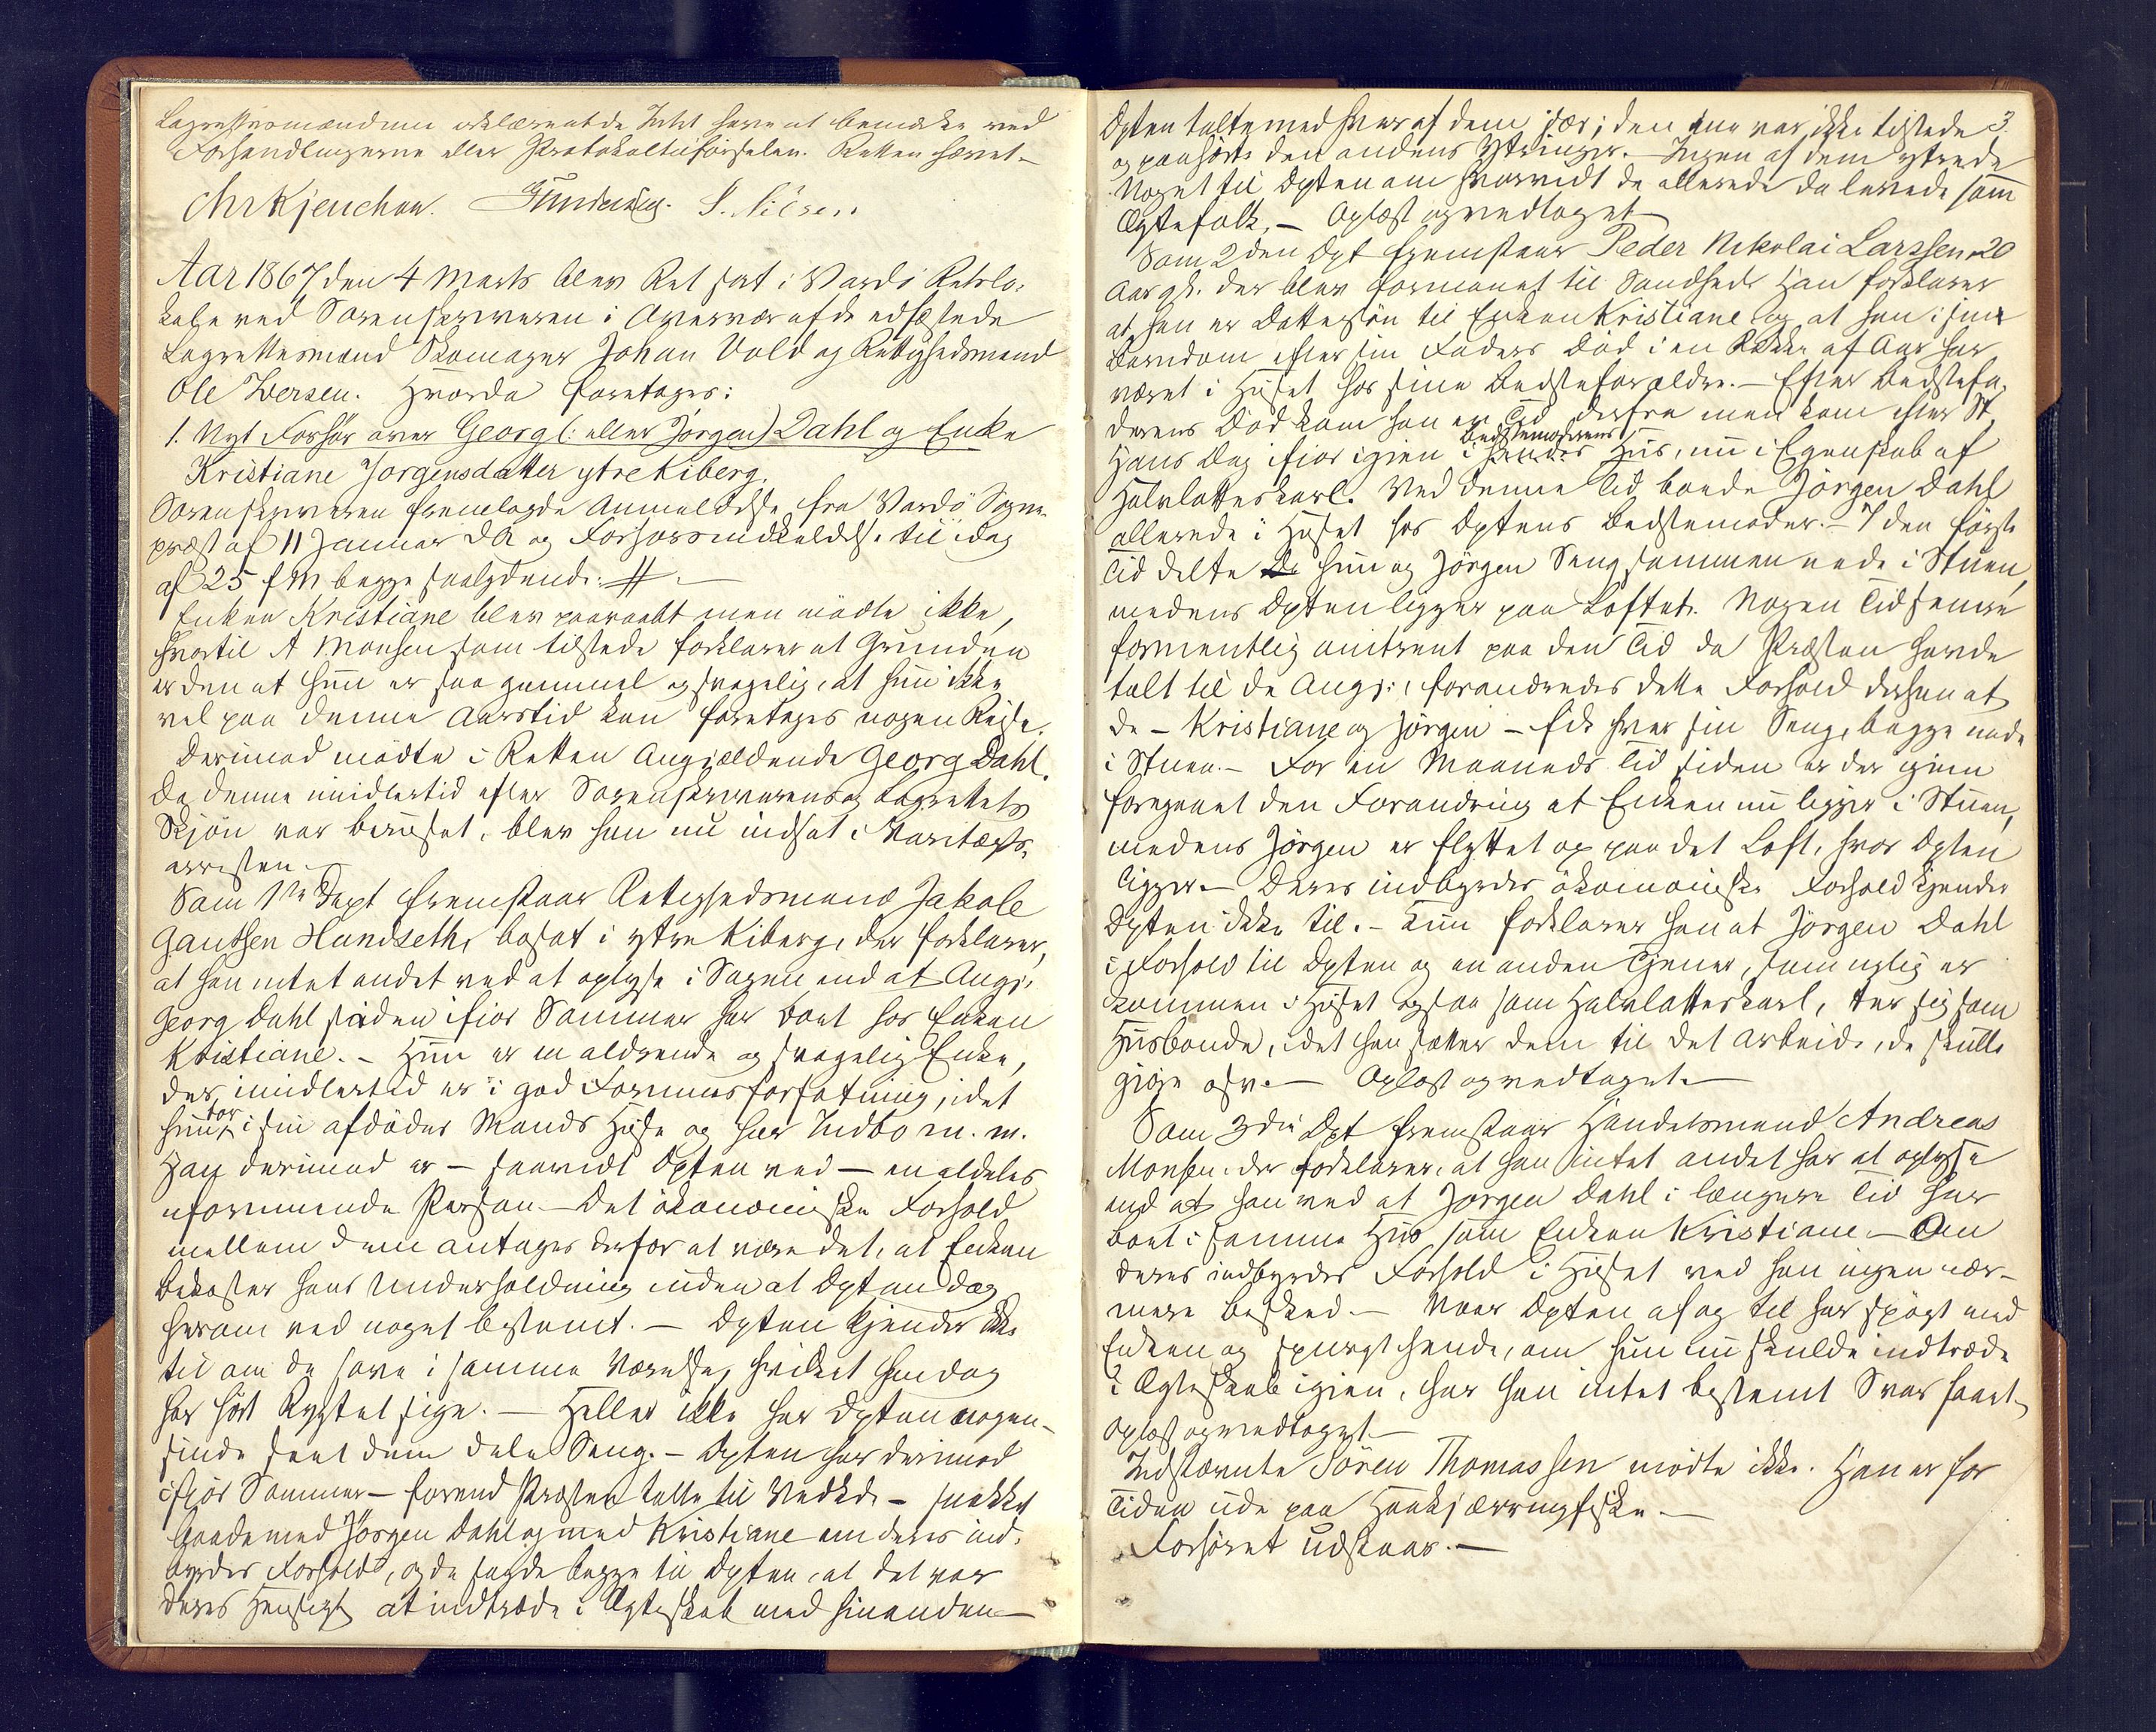 Lagrettesmændene erklærede Intet have at bemærke ved
Forhandlingerne eller Protokoltilførselen. Retten hævet.
Chr Kjeuchow. Gundersen. S. Nilsen
Aar 1867 den 4 Marts blev Ret sat i Vardö Retslo-
kale ved Sorenskriveren i Overvær af de edfæstede
Lagrettesmænd Skomager Johan Vold og Rettighedsmand
Ole Iversen. Hvorda foretages:
1. Nyt Forhör over Georg (: eller Jörgen) Dahl og Enke
Kristiane Jörgensdatter ytre Kiberg.
Sorenskriveren fremlagde Anmeldelse fra Vardö Sogne-
præst af 11 Januar d A og Forhörsindkaldelse til idag
af 25 f M begge saalydende: #.
Enken Kristiane blev paaraabt men mödte ikke,
hvortil A Monsen som tilstede forklarer at Grunden
er den at hun er saa gammel og svagelig, at hun ikke
vel paa denne Aarstid kan foretages nogen Reise.
Derimod mödte i Retten Angjældende Georg Dahl.
Da denne imidlertid efter Sorenskriverens og Lagrettets
Skjön var beruset, blev han nu indsat i Varetægts-
arresten.
Som 1ste Dept fremstaar Rettighedsmand Jakob
Gautsen Hundseth, bosat i ytre Kiberg, der forklarer,
at han intet andet ved at oplyse i Sagen, end at Angj.
Georg Dahl siden ifjor Sommer har boet hos Enken
Kristiane. – Hun er en aldrende og svagelig Enke,
der imidlertid er i god Formuesforfatning, idet
hun bor i sin afdöde Mands Huse og har Indbo m. m.
Han derimod er – saavidt Dpten ved – en aldeles
uformuende Person. – Det ökonomiske Forhold
mellem dem antages derfor at være det, at Enken
bekoster hans Underholdning uden at Dpten dog
herom ved noget bestemt. – Dpten kjender ikke
til om de sove i samme Værelse, hvilket han dog
har hört Rygtet sige. – Heller ikke har Dpten nogen-
sinde seet dem dele Seng. – Dpten har derimod
ifjor Sommer – forend Præsten talte til Vedkde – snakket
baade med Jörgen Dahl og med Kristiane om deres ind-
byrdes Forhold, og de sagde begge til Dpten, at det var
deres Hensigt at indtræde i Ægteskab med hinanden. –
3.
Dpten talte med hver af dem især; den ene var ikke tilstede
og paahörte den andens Ytringer. – Ingen af dem ytrede
Noget til Dpten om hvorvidt de allerede da levede som
Ægtefolk. – Oplæst og vedtaget. –
Som 2den Dpt fremstaar Peder Nikolai Larssen 20
Aar gl. der blev formanet til Sandhed. Han forklarer
at han er Dattersön til Enken Kristiane og at han i sin
Barndom efter sin Faders Död i en Række af Aar har
været i Huset hos sine Bedsteforældre. – Efter Bedstefa-
derens Död kom han en Tid derfra men kom efter St
Hans Dag ifjor igjen i Bedstemoderens Hus, nu i Egenskab af
Halvlotteskarl. Ved denne Tid boede Jörgen Dahl
allerede i Huset hos Dptens Bedstemoder. – I den förste
Tid delte hun og Jörgen Seng sammen nede i Stuen,
medens Dpten ligger paa Loftet. Nogen Tid senere
formentlig omtrent paa den Tid da Præsten havde
talt til de Angj., forandredes dette Forhold derhen at
de – Kristiane og Jörgen – fik hver sin Seng, begge nede
i Stuen. – For en Maaneds Tid siden er der igjen
foregaaet den Forandring at Enken nu ligger i Stuen,
medens Jörgen er flyttet op paa det Loft, hvor Dpten
ligger. – Deres indbyrdes ökonomiske Forhold kjender
Dpten ikke til. – Kun forklarer han at Jörgen Dahl
i Forhold til Dpten og en anden Tjener, som nylig er
kommen i Huset ogsaa som Halvlotteskarl, ter sig som
Husbonde, idet han sætter dem til det Arbeide, de skulle
gjöre osv. – Oplæst og vedtaget. –
Som 3die Dpt fremstaar Handelsmand Andreas
Monsen, der forklarer, at han intet andet har at oplyse
end at han ved at Jörgen Dahl i længere Tid har
boet i samme Hus som Enken Kristiane. – Om
deres indbyrdes Forhold i Huset ved han ingen nær-
mere Besked. – Naar Dpten af og til har spögt med
Enken og spurgt hende, om hun nu skulde indtræde
i Ægteskab igjen, har han intet bestemt Svar faaet.
Oplæst og vedtaget. –
Indstævnte Sören Thomassen mödte ikke. Han er for
Tiden ude paa Haakjærringfiske. –
Forhöret udstaar. –